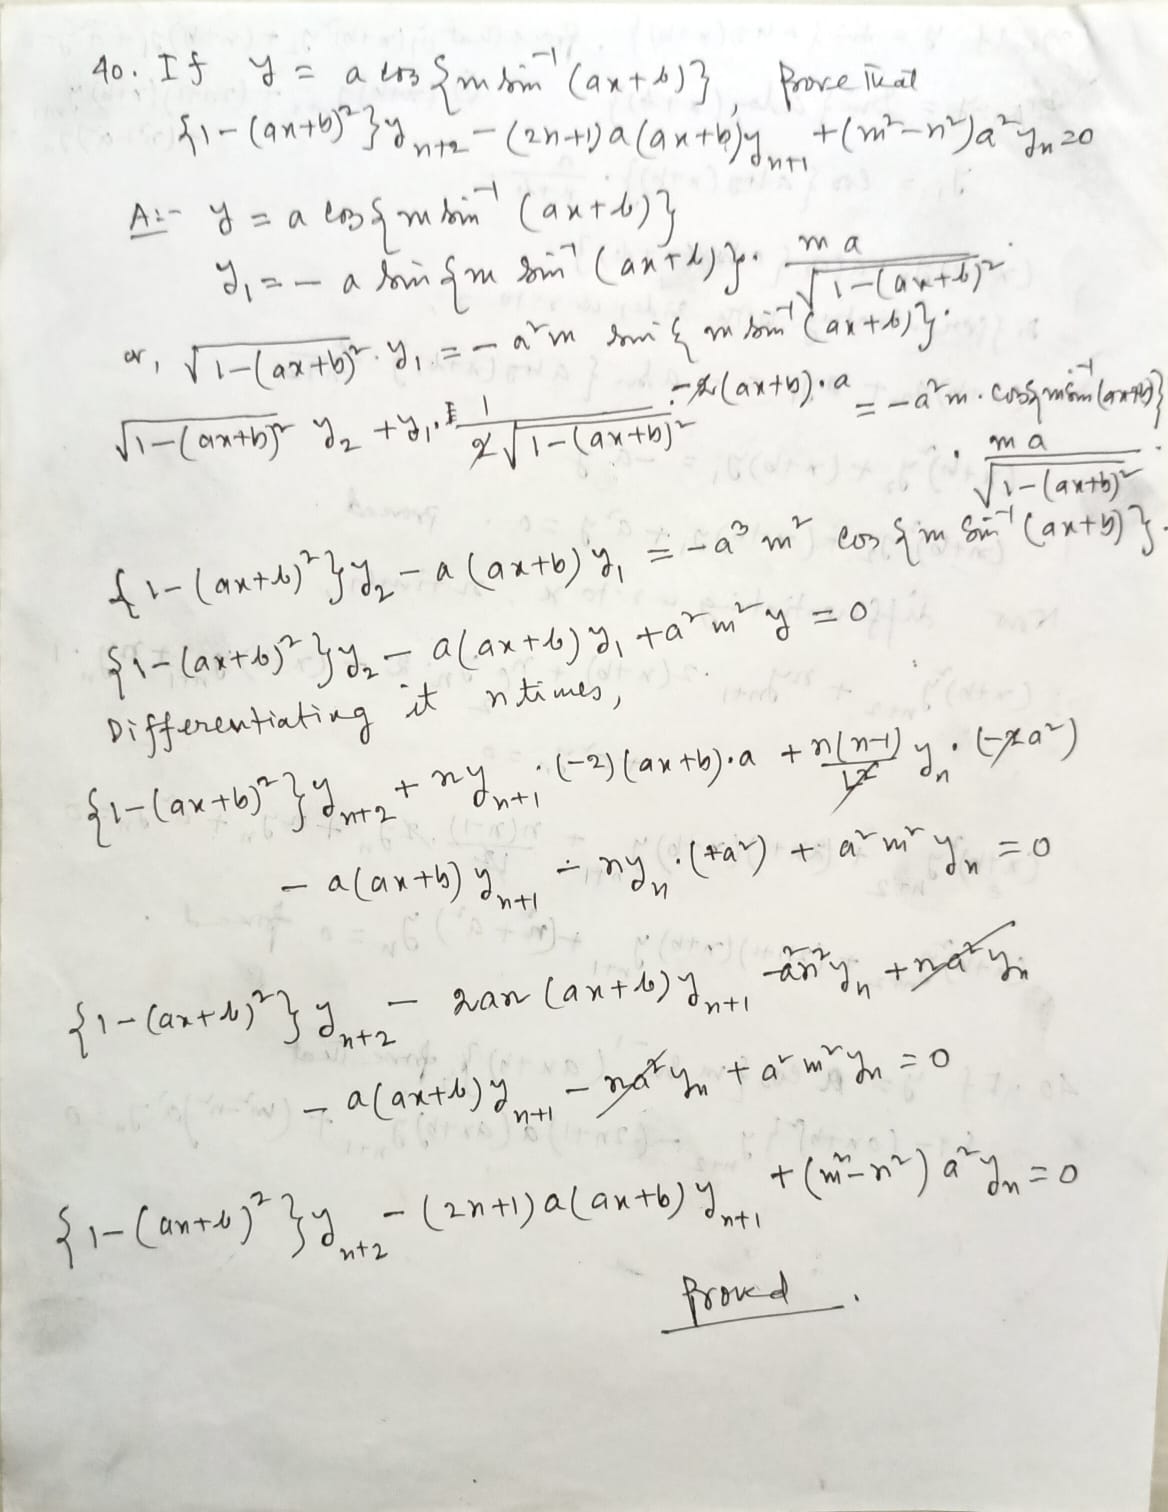 40. If y = a cos{m sin⁻¹(ax+b)}, Prove that
{1-(ax+b)²}yₙ₊₂ - (2n+1)a(ax+b)yₙ₊₁ + (m²-n²)a²yₙ=0
A:- y = a cos{m sin⁻¹(ax+b)}
y₁ = - a sin{m sin⁻¹(ax+b)}. ma/√(1-(ax+b)²).
or, √(1-(ax+b)²). y₁ = - a²m sin{m sin⁻¹(ax+b)}.
√(1-(ax+b)²) y₂ + y₁. 1/(2√(1-(ax+b)²)) . -2(ax+b).a = -a²m. cos{m sin⁻¹(ax+b)}
. ma/√(1-(ax+b)²).
{1-(ax+b)²}y₂ - a(ax+b)y₁ = -a³m² cos{m sin⁻¹(ax+b)}.
{1-(ax+b)²}y₂ - a(ax+b)y₁ + a²m²y = 0
Differentiating it n times,
{1-(ax+b)²}yₙ₊₂ + nyₙ₊₁.(-2)(ax+b).a + n(n-1)/2 yₙ.(-2a²)
- a(ax+b)yₙ₊₁ - nyₙ.(+a²) + a²m²yₙ = 0
{1-(ax+b)²}yₙ₊₂ - 2an(ax+b)yₙ₊₁ - a²n²yₙ + na²yₙ
- a(ax+b)yₙ₊₁ - na²yₙ + a²m²yₙ = 0
{1-(ax+b)²}yₙ₊₂ - (2n+1)a(ax+b)yₙ₊₁ + (m²-n²)a²yₙ = 0
Proved.